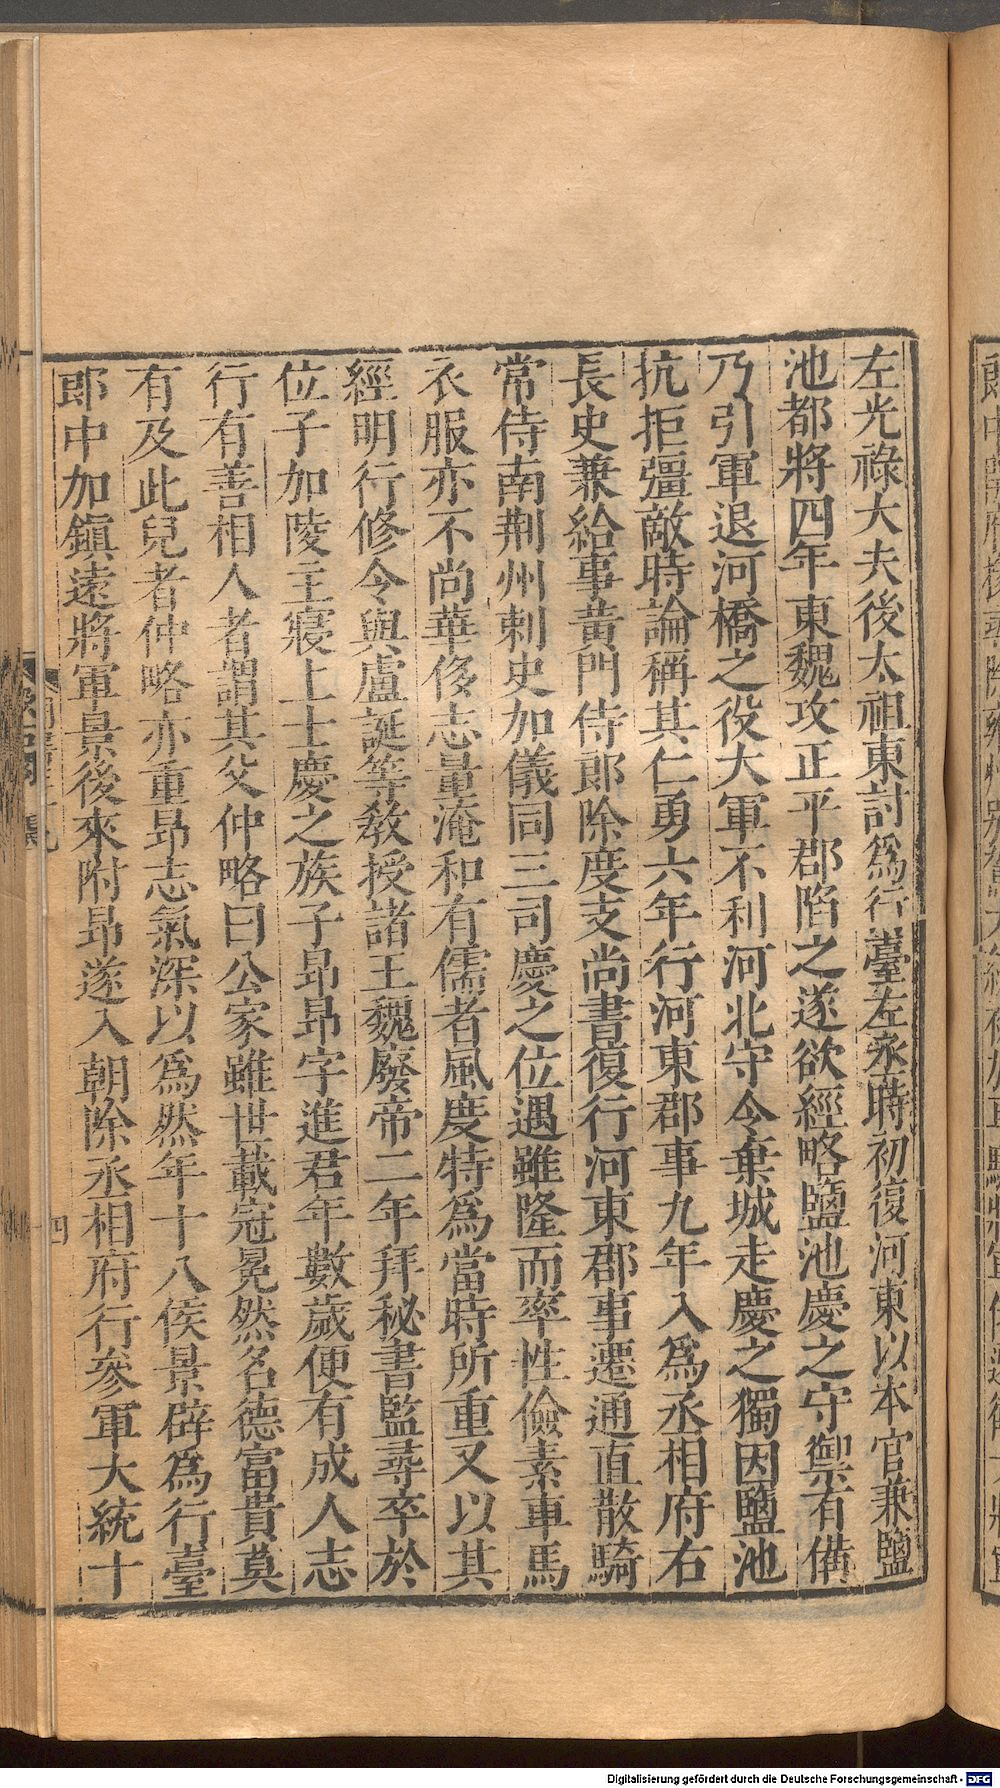 左光祿大夫後太祖東討爲行臺左丞時初復河東以本官兼鹽
池都將四年東魏攻正平郡陷之遂欲經略鹽池慶之守禦有備
乃引軍退河橋之役大軍不利河北守令棄城走慶之獨因鹽池
抗拒彊敵時論稱其仁勇六年行河東郡事九年入爲丞相府右
長史兼給事黃門侍郎除度支尚書復行河東郡事遷通直散騎
常侍南荆州刺史加儀同三司慶之位遇雖隆而率性儉素車馬
衣服亦不尚華侈志量淹和有儒者風度特爲當時所重又以其
經明行修令與盧誕等敎授諸王魏廢帝二年拜秘書監尋卒於
位子加陵主寢上士慶之族子昂昂字進君年數歲便有成人志
行有善相人者謂其父仲略曰公家雖世載冠冕然名德富貴莫
有及此兒者仲略亦重昂志氣深以爲然年十八侯景辟爲行臺
郎中加鎮遠將軍景後來附昂遂入朝除丞相府行參軍大統十
四
Digitalisierung gefördert durch die Deutsche Forschungsgemeinschaft - DFG